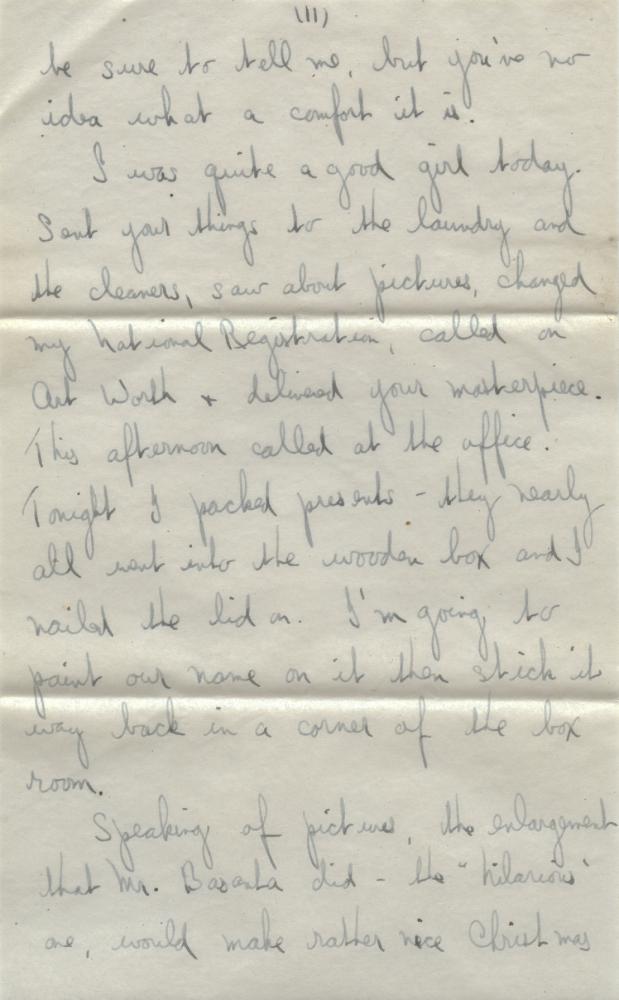 (11)
be sure to tell me, but you've no
idea what a comfort it is.
I was quite a good girl today.
Sent your things to the laundry and
the cleaners, saw about pictures, changed
my National Registration, called on
Art Worth + delivered your masterpiece.
This afternoon called at the office.
Tonight I packed presents - they nearly
all went into the wooden box and I
nailed the lid on. I'm going to
paint our name on it then stick it
way back in a corner of the box
room.
Speaking of pictures, the enlargement
that Mr. did - the "hilarious"
one, would make rather nice Christmas